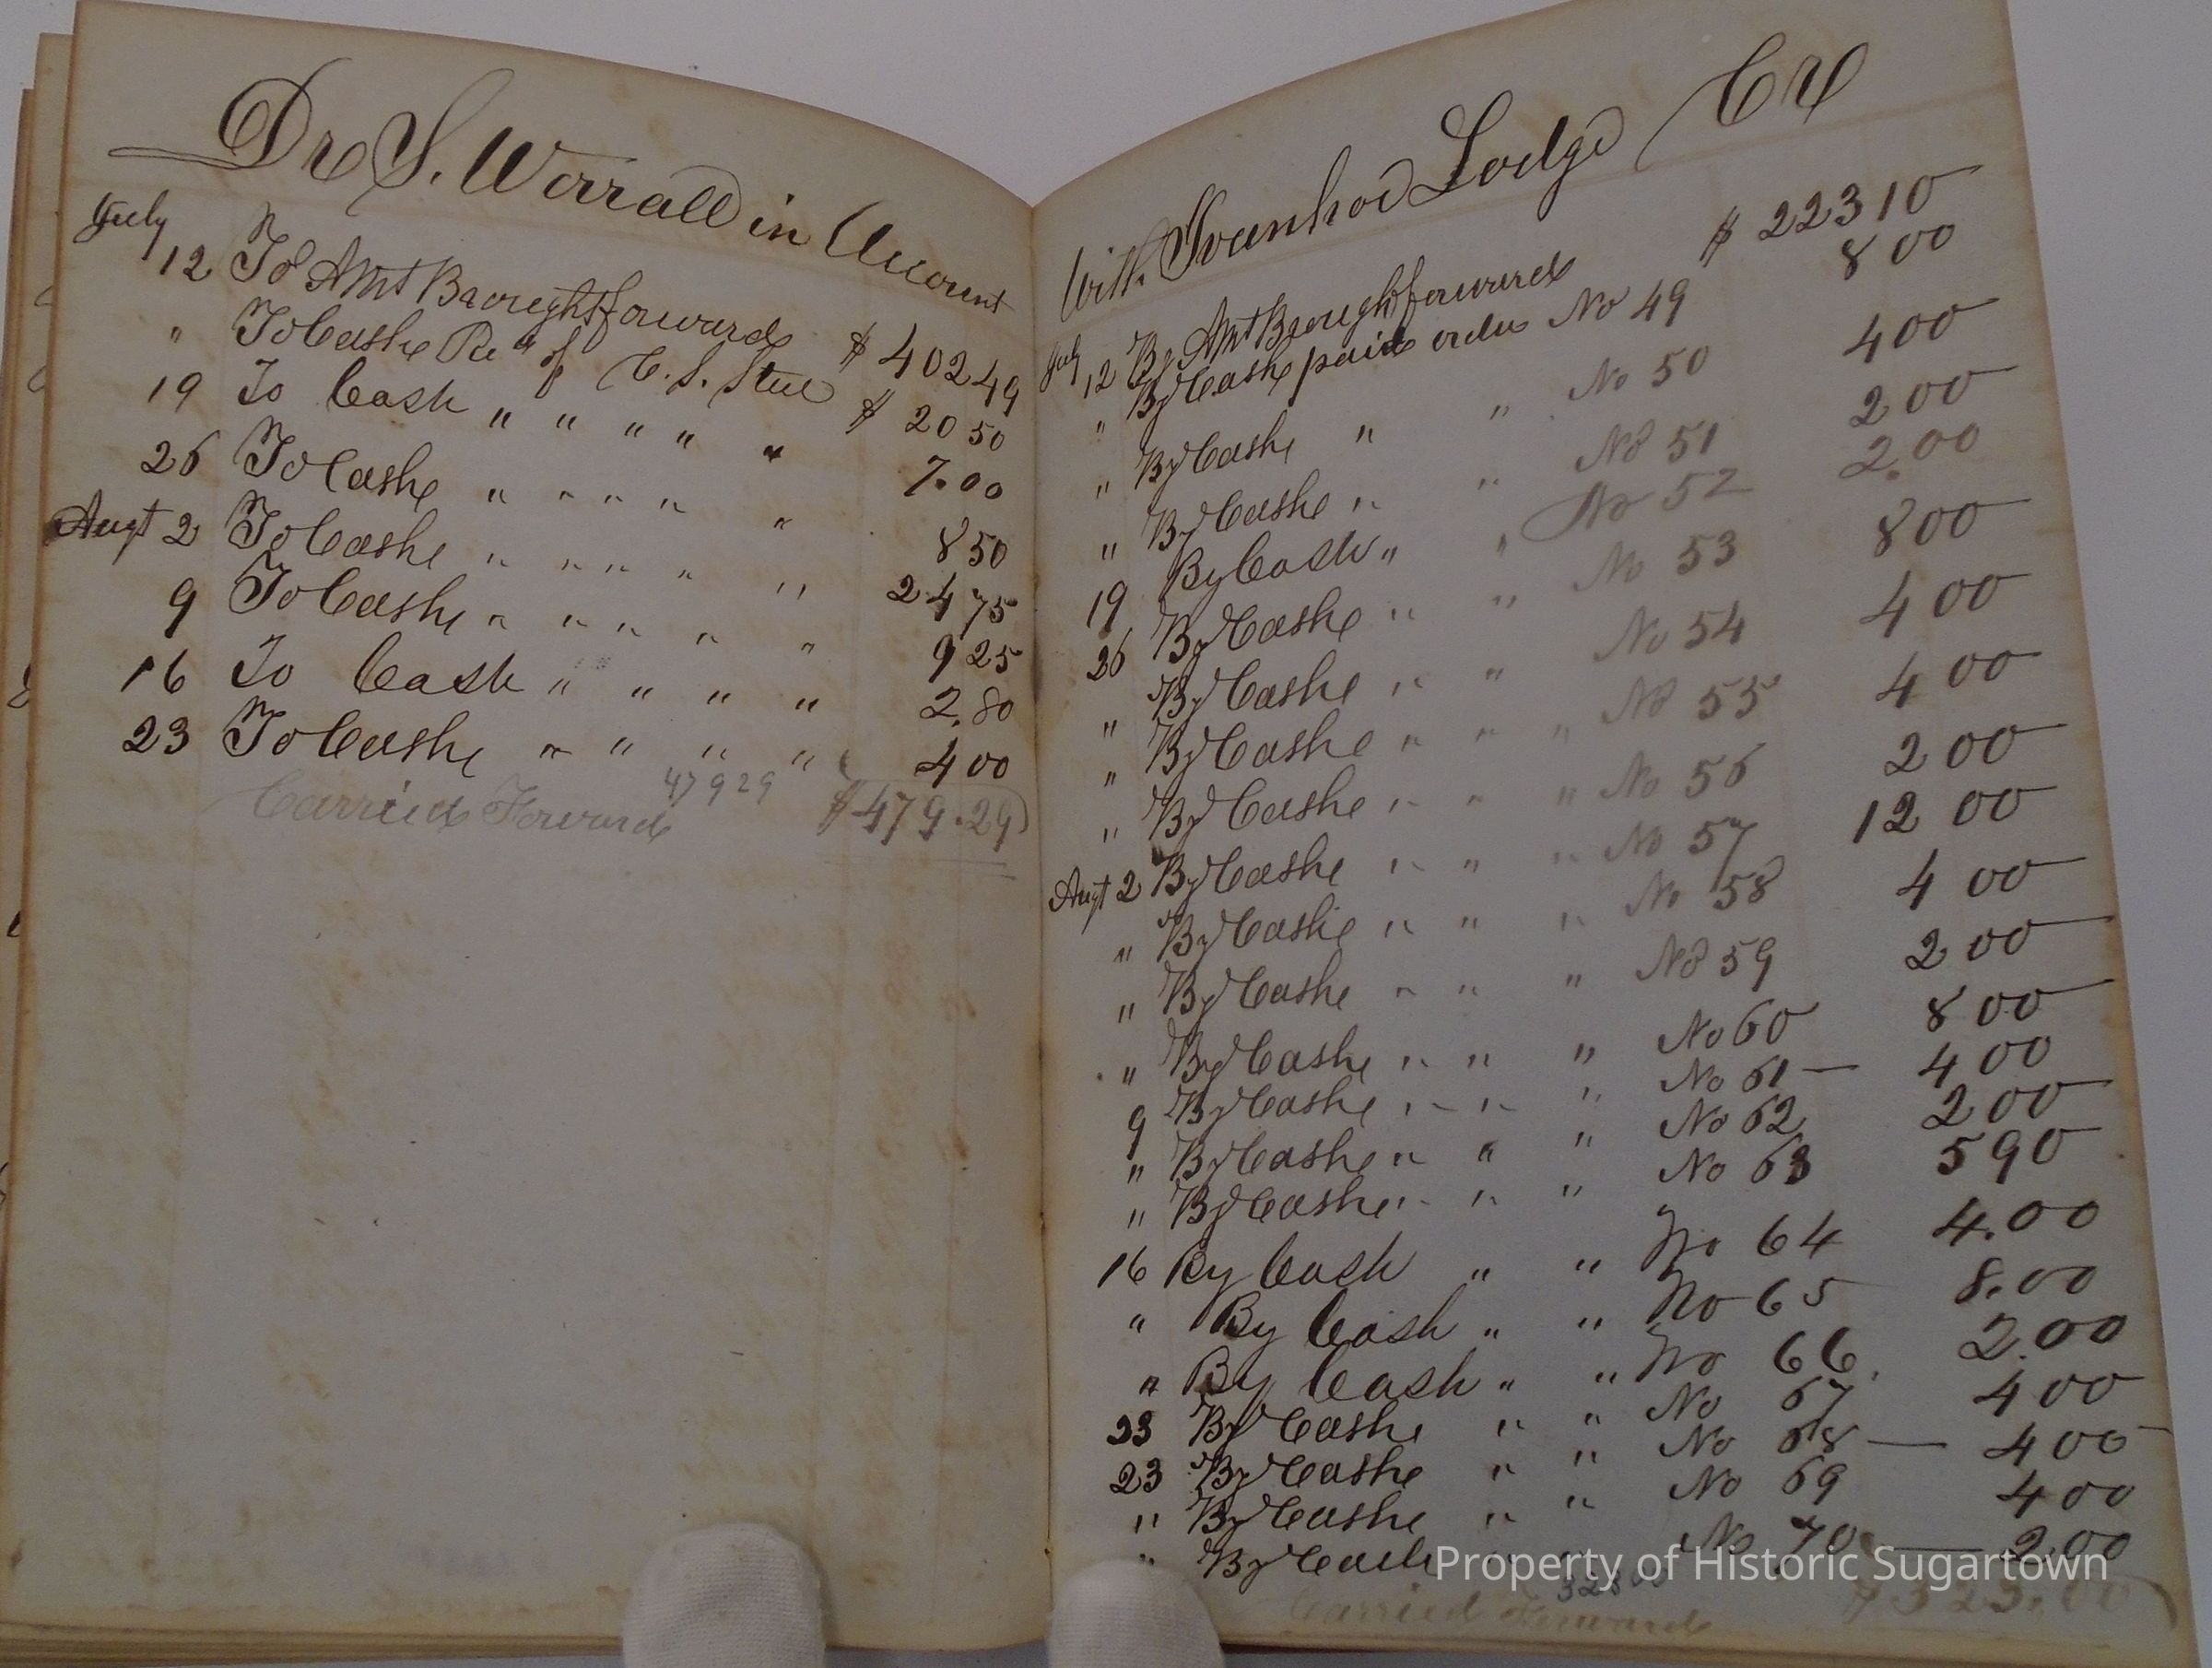 Dr S. Worrall in Account
July 12 To Amt Baought forward $ 402 49
" To Cashe Re'd of C. S. Stue $ 20 50
19 To Cash " " " " " 7.00
26 To Cashe " " " " " 8 50
Augt 2 To Cashe " " " " " 24 75
9 To Cashe " " " " " 9 25
16 To Cash " " " " 2.80
23 To Cashe " " " " 4 00
479 29
Carried Forward $ 479.29
With Ivanhoe Lodge Cr
July 12 By Amt Baought forward $ 223 10
" By Cashe paid order No 49 8 00
" By Cashe " " No 50 4 00
" By Cashe " " No 51 2 00
19 By Cash " " No 52 2.00
26 By Cashe " " No 53 8 00
" By Cashe " " No 54 4 00
" By Cashe " " " No 55 4 00
" By Cashe " " " No 56 2 00
Augt 2 By Cashe " " " No 57 12 00
" By Cashe " " " No 58 4 00
" By Cashe " " " No 59 2 00
" By Cashe " " " No 60 8 00
9 By Cashe " " " No 61 — 4 00
" By Cashe " " " No 62 2 00
" By Cashe " " " No 63 5 90
16 By Cash " " No 64 4.00
" By Cash " " No 65 8.00
" By Cash " " No 66. 2.00
23 By Cashe " " No 67 4 00
23 By Cashe " " No 68 — 4 00
" By Cashe " " No 69 4 00
" By Cash " " No 70 — 2.00
323 00
Carried Forward $ 323.00
Property of Historic Sugartown